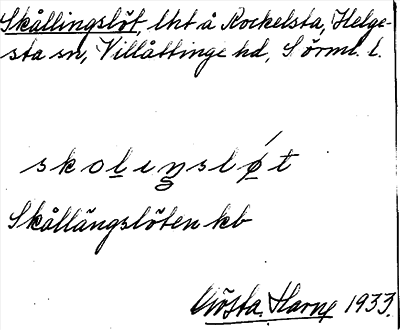 Skållingslöt, lht å Rockelsta, Helge-
sta sn, Villåttinge hd, Sörml. l.
skolıŋslǿt
Skållängslöten kb
Gösta Harne 1933.